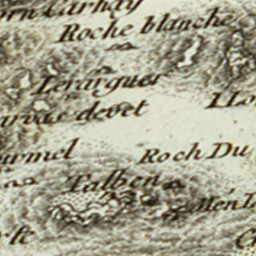 orn Carhay
Roche blanche
Lerargues
arvas devet
I Lo
urmel
Roch Du
Talben
Men L